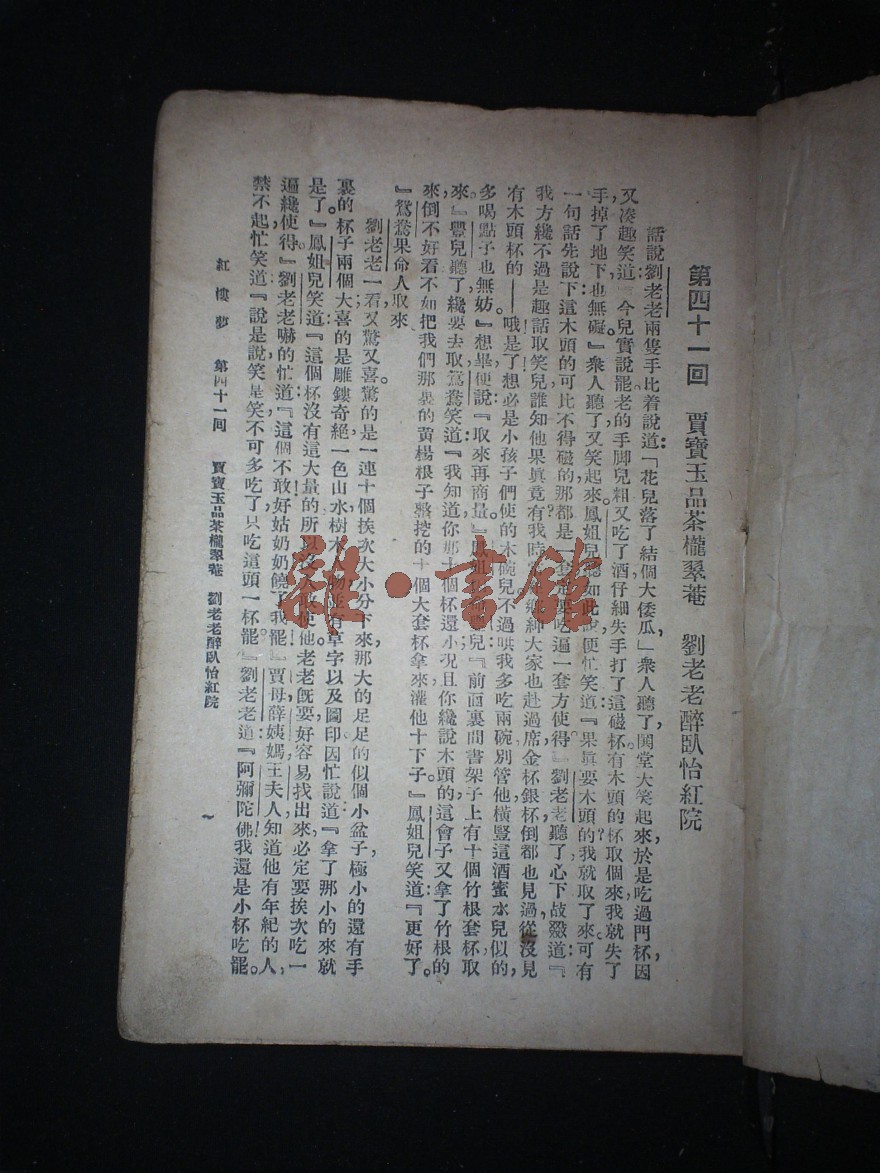 第四十一回 賈寶玉品茶櫳翠菴 劉老老醉臥怡紅院
話說劉老老兩隻手比着說道「花兒落了結個大倭瓜」衆人聽了鬨堂大笑起來於是吃過門杯因
又湊趣笑道今兒實說罷老的手脚兒粗又吃了酒仔細失手打了這磁杯有木頭的杯取個來我就失了
手掉了地下也無礙』衆人聽了又笑起來鳳姐兒聽如此說便忙笑道『果眞要木頭的我就取了來可有
一句話先說下這木頭的可比不得磁的那都是一套定要吃遍一套方使得』劉老老聽了心下敁敠道『
我方纔不過是趣話取笑兒誰知他果眞竟有我時常在鄉紳大家也赴過席金杯銀杯倒都也見過從沒見
有木頭杯的——哦是了想必是小孩子們使的木碗兒不過哄我多吃兩碗別管他橫豎這酒蜜水兒似的
多喝點子也無妨』想畢便說『取來再商量』鳳姐兒『前面裏間書架子上有十個竹根套杯取
來』豐兒聽了纔要去取鴛鴦笑道『我知道你那十個杯還小况且你纔說木頭的這會子又拿了竹根的
來倒不好看不如把我們那裏的黄楊根子整挖的十個大套杯拿來灌他十下子』鳳姐兒笑道『更好了
』鴛鴦果命人取來
劉老老一看又驚又喜驚的是一連十個挨次大小分下來那大的足足的似個小盆子極小的還有手
裏的杯子兩個大喜的是雕鏤奇絕一色山水樹木人物並有草字以及圖印因忙說道『拿了那小的來就
是了』鳳姐兒笑道『這個杯沒有這大量的所以沒人敢使他老老旣要好容易找出來必定要挨次吃一
遍纔使得』劉老老嚇的忙道『這個不敢好姑奶奶饒了我罷』賈母薛姨媽王夫人知道他有年紀的人
禁不起忙笑道『說是說笑是笑不可多吃了只吃這頭一杯罷』劉老老道『阿彌陀佛我還是小杯吃罷
紅樓夢 第四十一回 賈寶玉品茶櫳翠菴 劉老老醉臥怡紅院 一
雜·書館